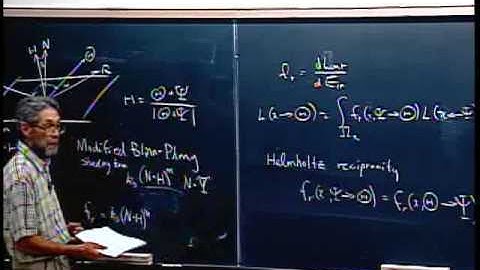 H N Θ
R
H = Θ + Ψ / |Θ + Ψ|
Modified Blinn-Phong
Shading term
k_s (N·H)^n N·Ψ
f_r = k_s (N·H)^n
f_r = dL_out / dE_in
L(x→Θ) = ∫_Ω_x f_r(x, Ψ→Θ) L(x←Ψ
Helmholtz reciprocity
f_r(x, Ψ→Θ) = f_r(x, Θ→Ψ